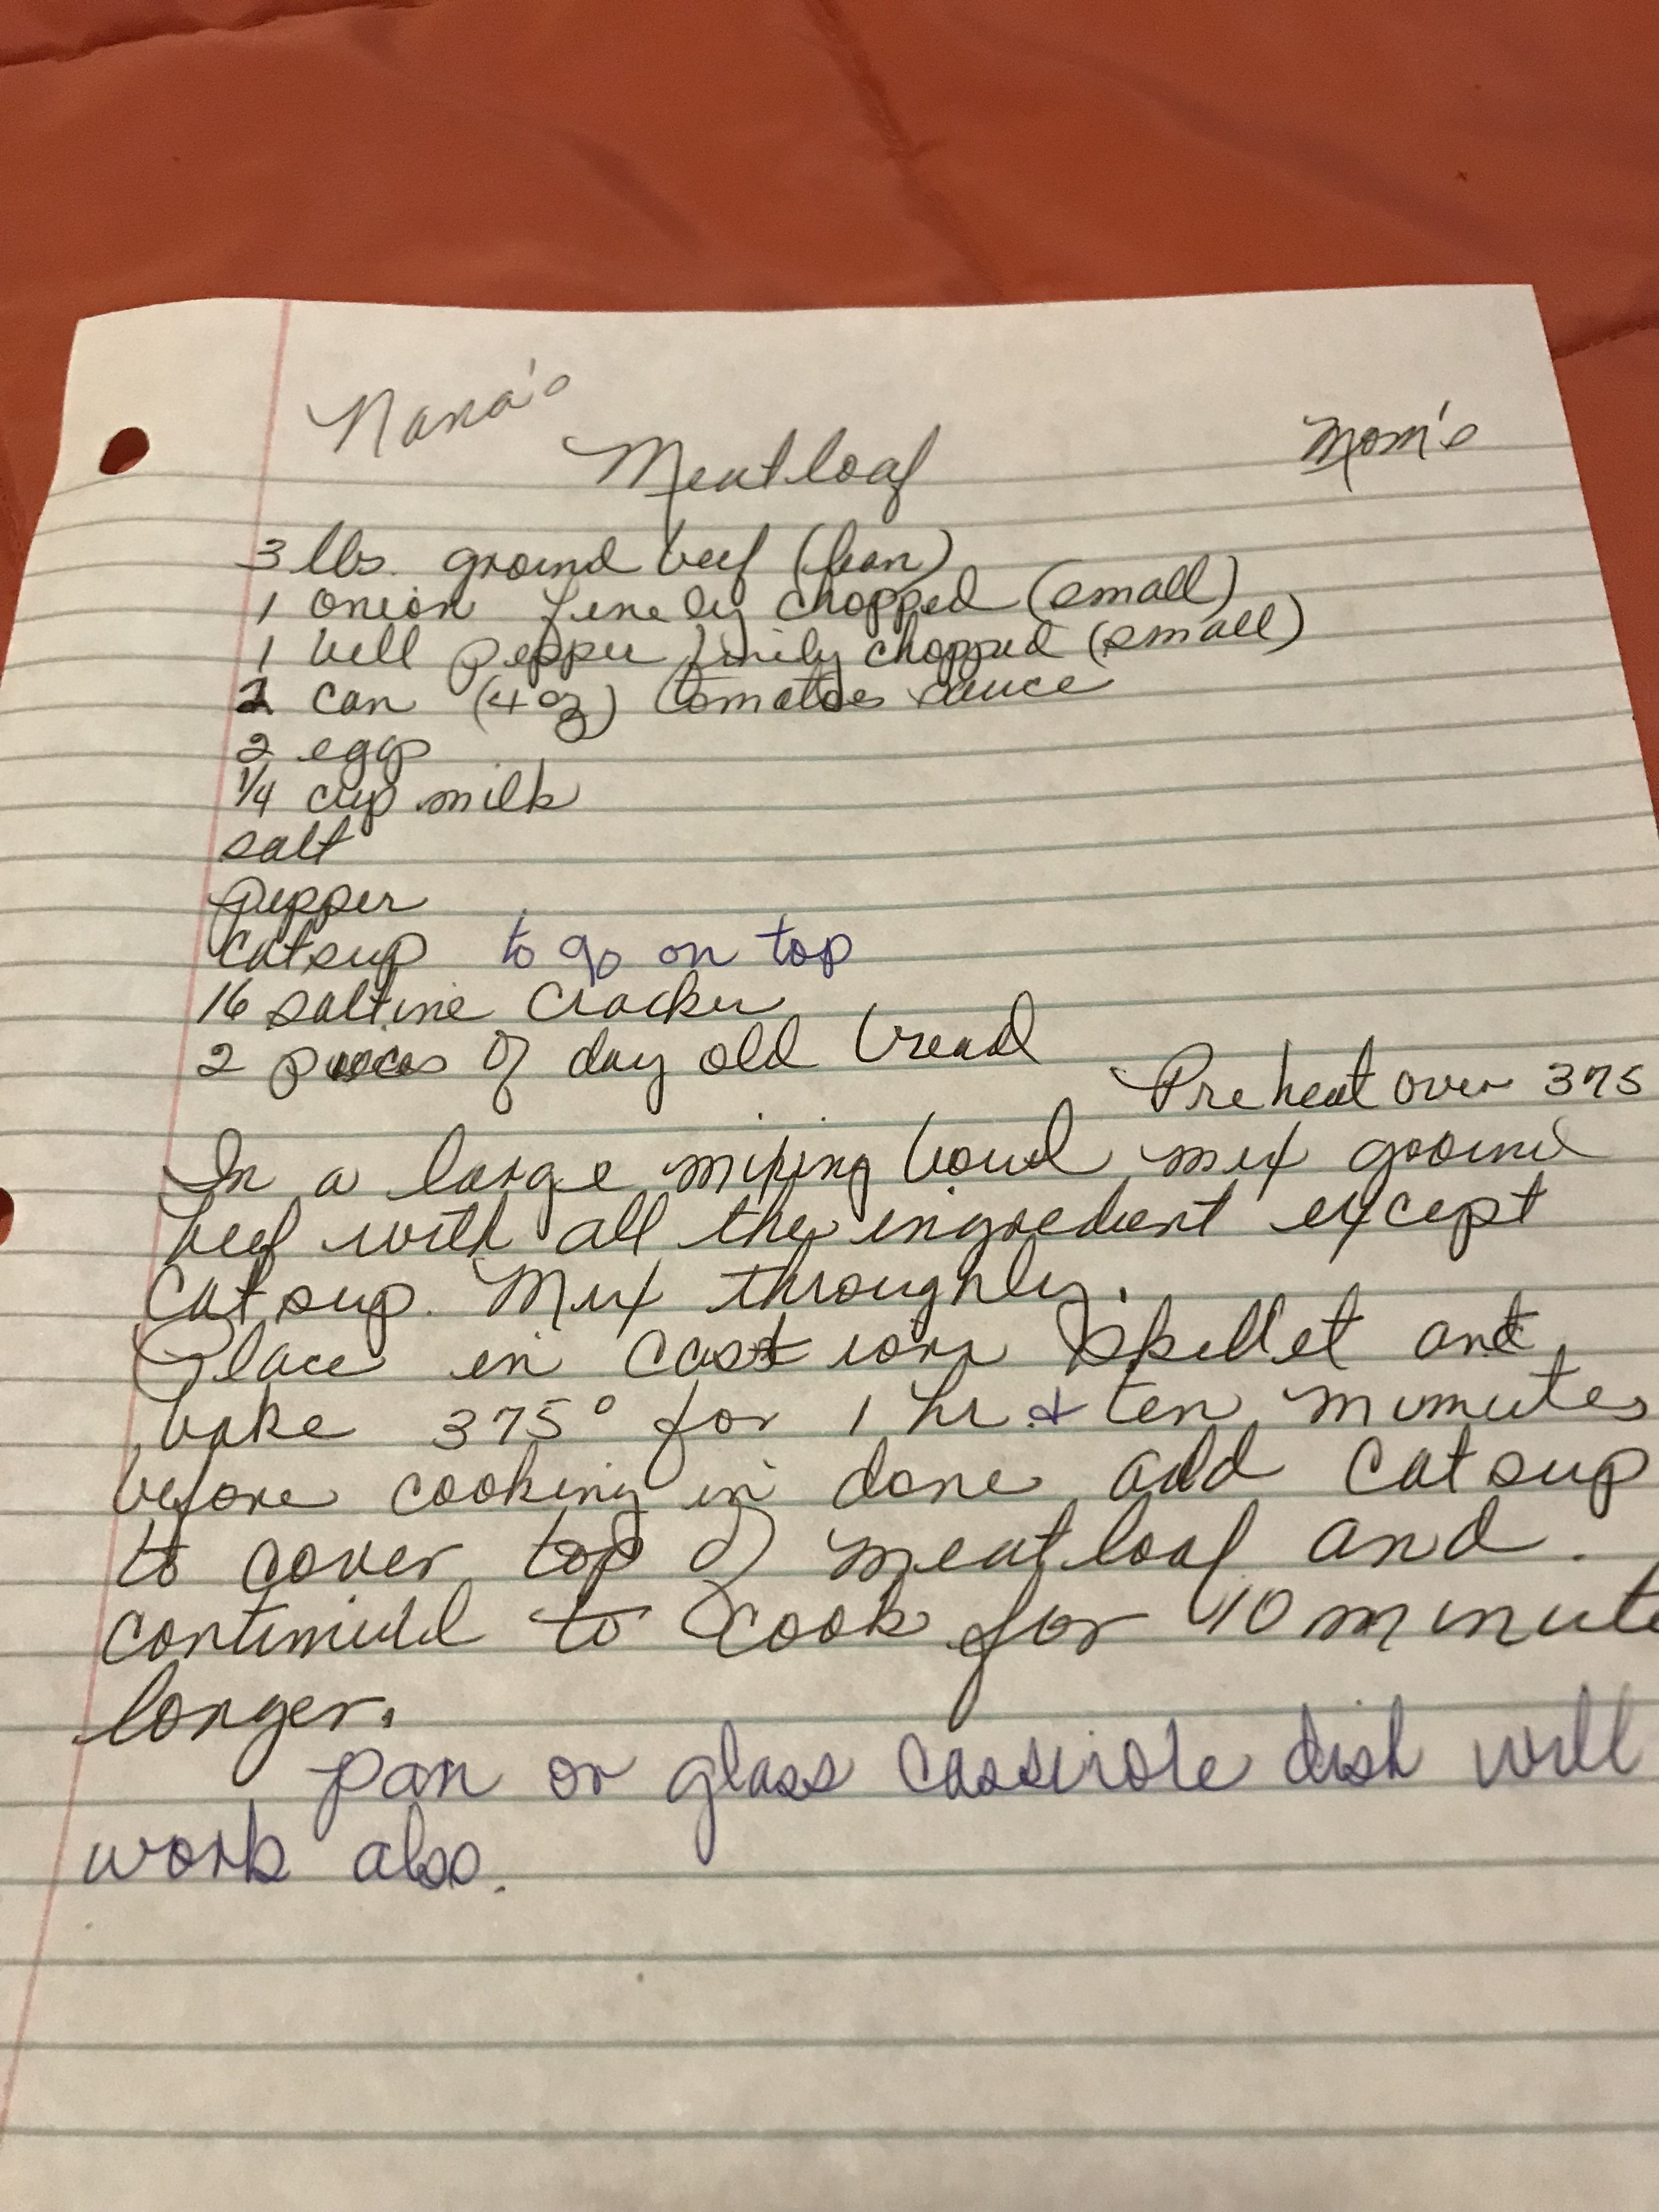 Nana's
Meatloaf
Mom's
3 lbs. ground beef (lean)
1 onion finely chopped (small)
1 bell pepper finily chopped (small)
2 can (4 oz) tomatoes sauce
2 eggs
1/4 cup milk
salt
pepper
catsup to go on top
16 saltine cracker
2 pieces of day old bread
Preheat oven 375
In a large mixing bowl mix ground
beef with all the ingredient except
catsup. Mix throughly.
Place in cast iorn skillet and
bake 375° for 1 hr. + ten minutes
before cooking in done add catsup
to cover top of meatloaf and
continued to cook for 10 minute
longer.
pan or glass casserole dish will
work also.